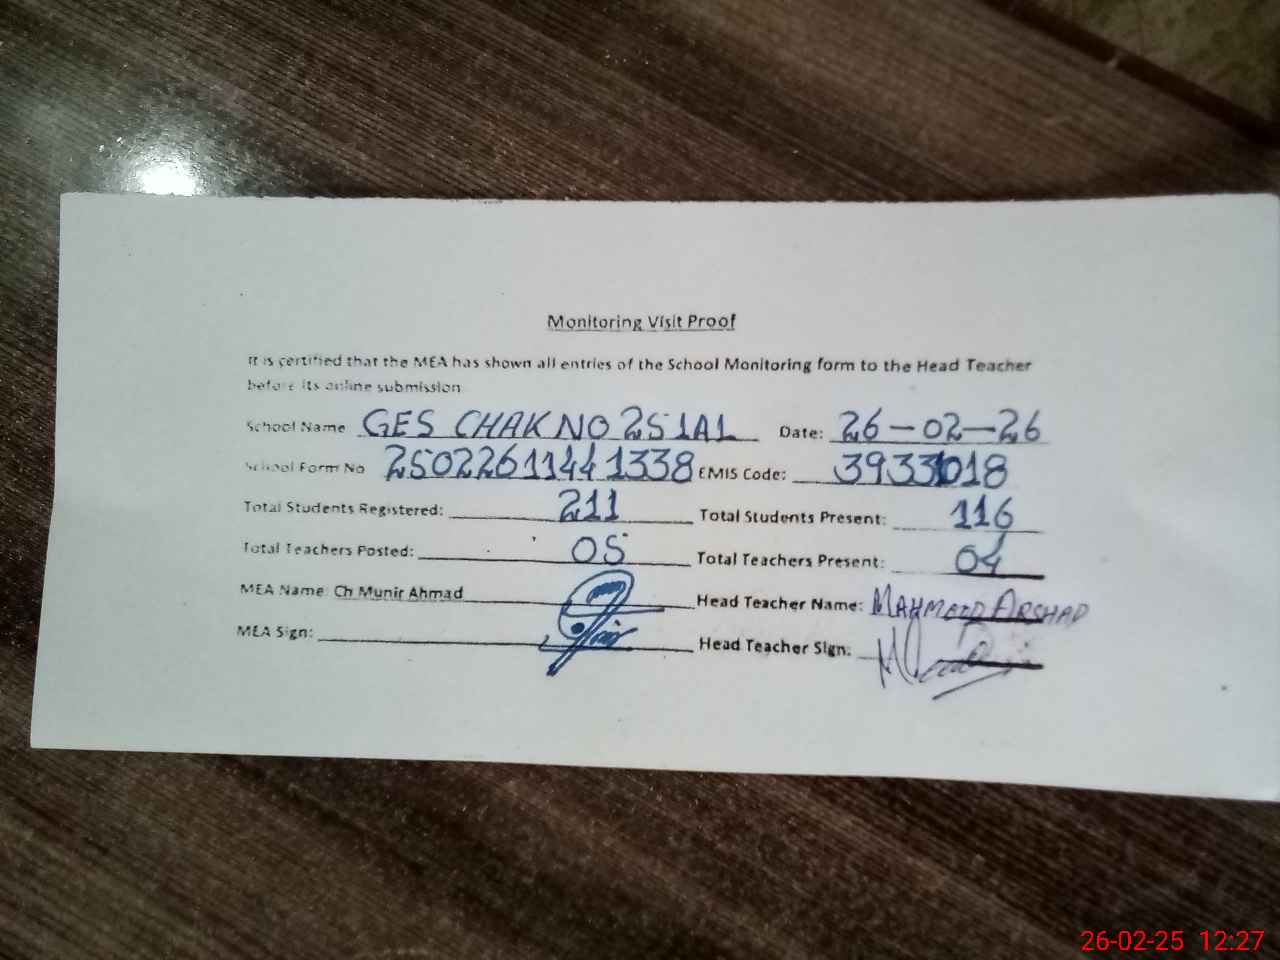 Monitoring Visit Proof
It is certified that the MEA has shown all entries of the School Monitoring form to the Head Teacher
before its online submission
School Name GES CHAK NO 251A1 Date: 26-02-26
School Form No 25022611441338 EMIS Code: 39331018
Total Students Registered: 211 Total Students Present: 116
Total Teachers Posted: 05 Total Teachers Present: 04
MEA Name: Ch Munir Ahmad Head Teacher Name: ARSHAD
MEA Sign: Head Teacher Sign:
26-02-25 12:27